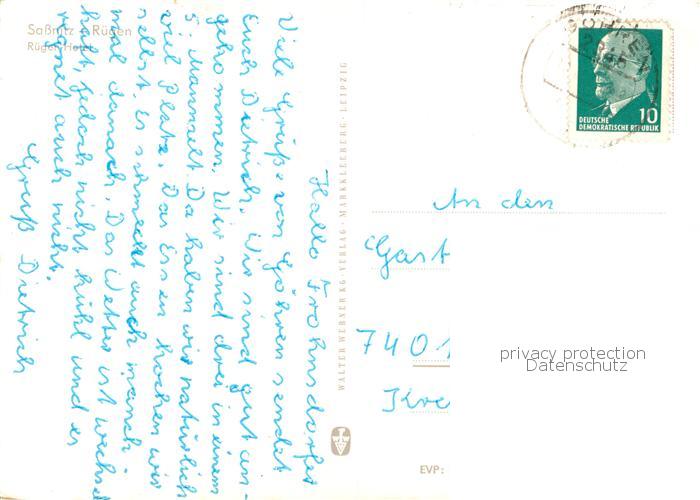 Saßnitz - Rügen
Rügen-Hotel
Hallo Frohnsdorfer
Viele Grüße von Göhren sendet
Euch Dietrich. Wir sind gut an-
gekommen. Wir sind drei in einem
5. Mannzelt. Da haben wir natürlich
viel Platz. Das Essen kochen wir
selbst. Es schmeckt auch manch-
mal danach. Das Wetter ist wechsel
haft, jedoch nicht kühl und es
regnet auch nicht.
Gruß Dietrich
WALTER WERNER KG · VERLAG · MARKKLEEBERG · LEIPZIG
GÖHREN
10
DEUTSCHE
DEMOKRATISCHE REPUBLIK
An den
Gast
7401
Kre
privacy protection
Datenschutz
EVP: